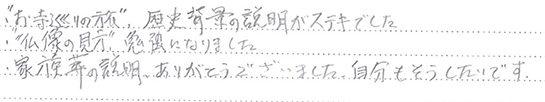 ・"お寺巡りの旅"、歴史背景の説明がステキでした
・"仏像の見方"勉強になりました
・家族葬の説明、ありがとうございました。自分もそうしたいです.